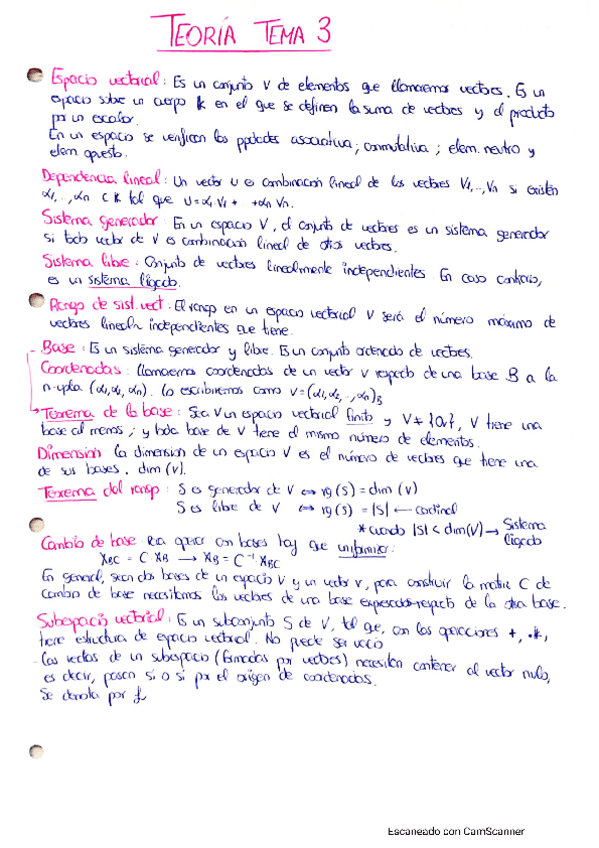 TEORÍA TEMA 3
Espacio vectorial: Es un conjunto V de elementos que llamaremos vectores. Es un
espacio sobre un cuerpo K en el que se definen la suma de vectores y el producto
por un escalar.
En un espacio se verifican las ppdades asociativa; conmutativa; elem. neutro y
elem opuesto.
Dependencia lineal: Un vector u es combinación lineal de los vectores V1,..,Vn si existen
α1,..,αn C K tal que u=α1V1+ +αn Vn.
Sistema generador: En un espacio V, el conjunto de vectores es un sistema generador
si todo vector de V es combinación lineal de otros vectores.
Sistema libre: Conjunto de vectores linealmente independientes En caso contrario,
es un sistema ligado.
Rango de sist.vect: El rango en un espacio vectorial V será el número máximo de
vectores linealm independientes que tiene.
Base: Es un sistema generador y libre. Es un conjunto ordenado de vectores.
Coordenadas: llamaremos coordenadas de un vector v respecto de una base B a la
n-upla (α1,α2,αn). Lo escribiremos como v=(α1,α2,..,αn)B
Teorema de la base: Sea V un espacio vectorial finito y V≠{0v}, V tiene una
base al menos; y toda base de V tiene el mismo número de elementos.
Dimensión la dimension de un espacio V es el número de vectores que tiene una
de sus bases. dim (V).
Teorema del rango: S es generador de V ⇔ rg(S)=dim (V)
S es libre de V ⇔ rg(S)=|S| ← cardinal
*cuando |S| < dim(V) → Sistema
ligado
Cambio de base Para operar con bases hay que uniformizar:
XBC = C·XB → XB = C⁻¹·XBC
En general, sean dos bases de un espacio V y un vector v, para construir la matriz C de
cambio de base necesitamos los vectores de una base expresados respecto de la otra base.
Subespacio vectorial: Es un subconjunto S de V, tal que, con las operaciones +, ·k,
tiene estructura de espacio vectorial. No puede ser vacío
- Los vectos de un subespacio (formados por vectores) necesitan contener al vector nulo,
es decir, pasan sí o sí por el origen de coordenadas.
Se denota por
Escaneado con CamScanner